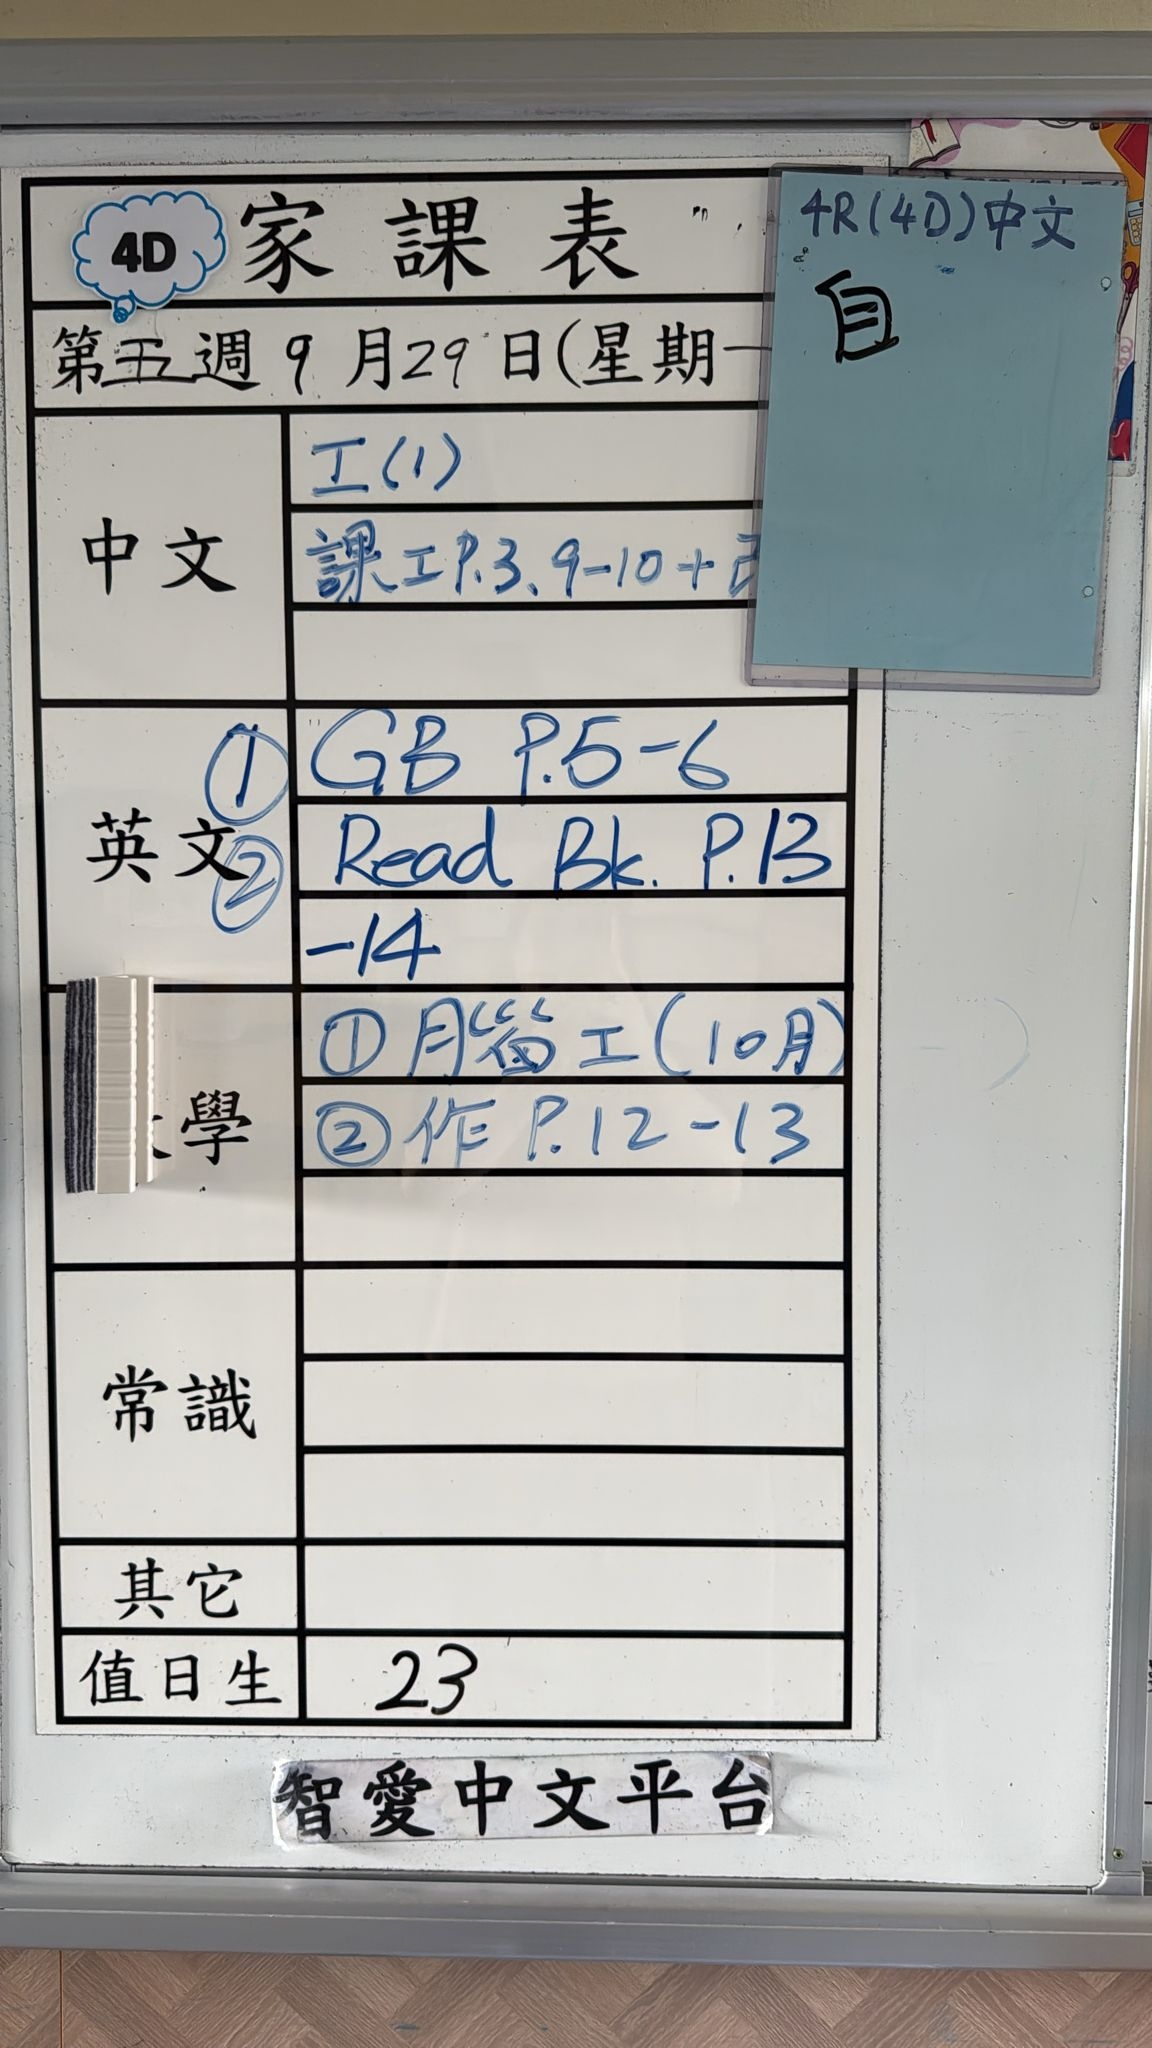 4D 家課表
第五週 9月29日(星期一
4R(4D)中文
自
中文
工(1)
課工P.3、9-10+
英文
① GB P.5-6
② Read Bk. P.13
-14
學
① 工(10月)
② 作 P.12-13
常識
其它
值日生 23
智愛中文平台